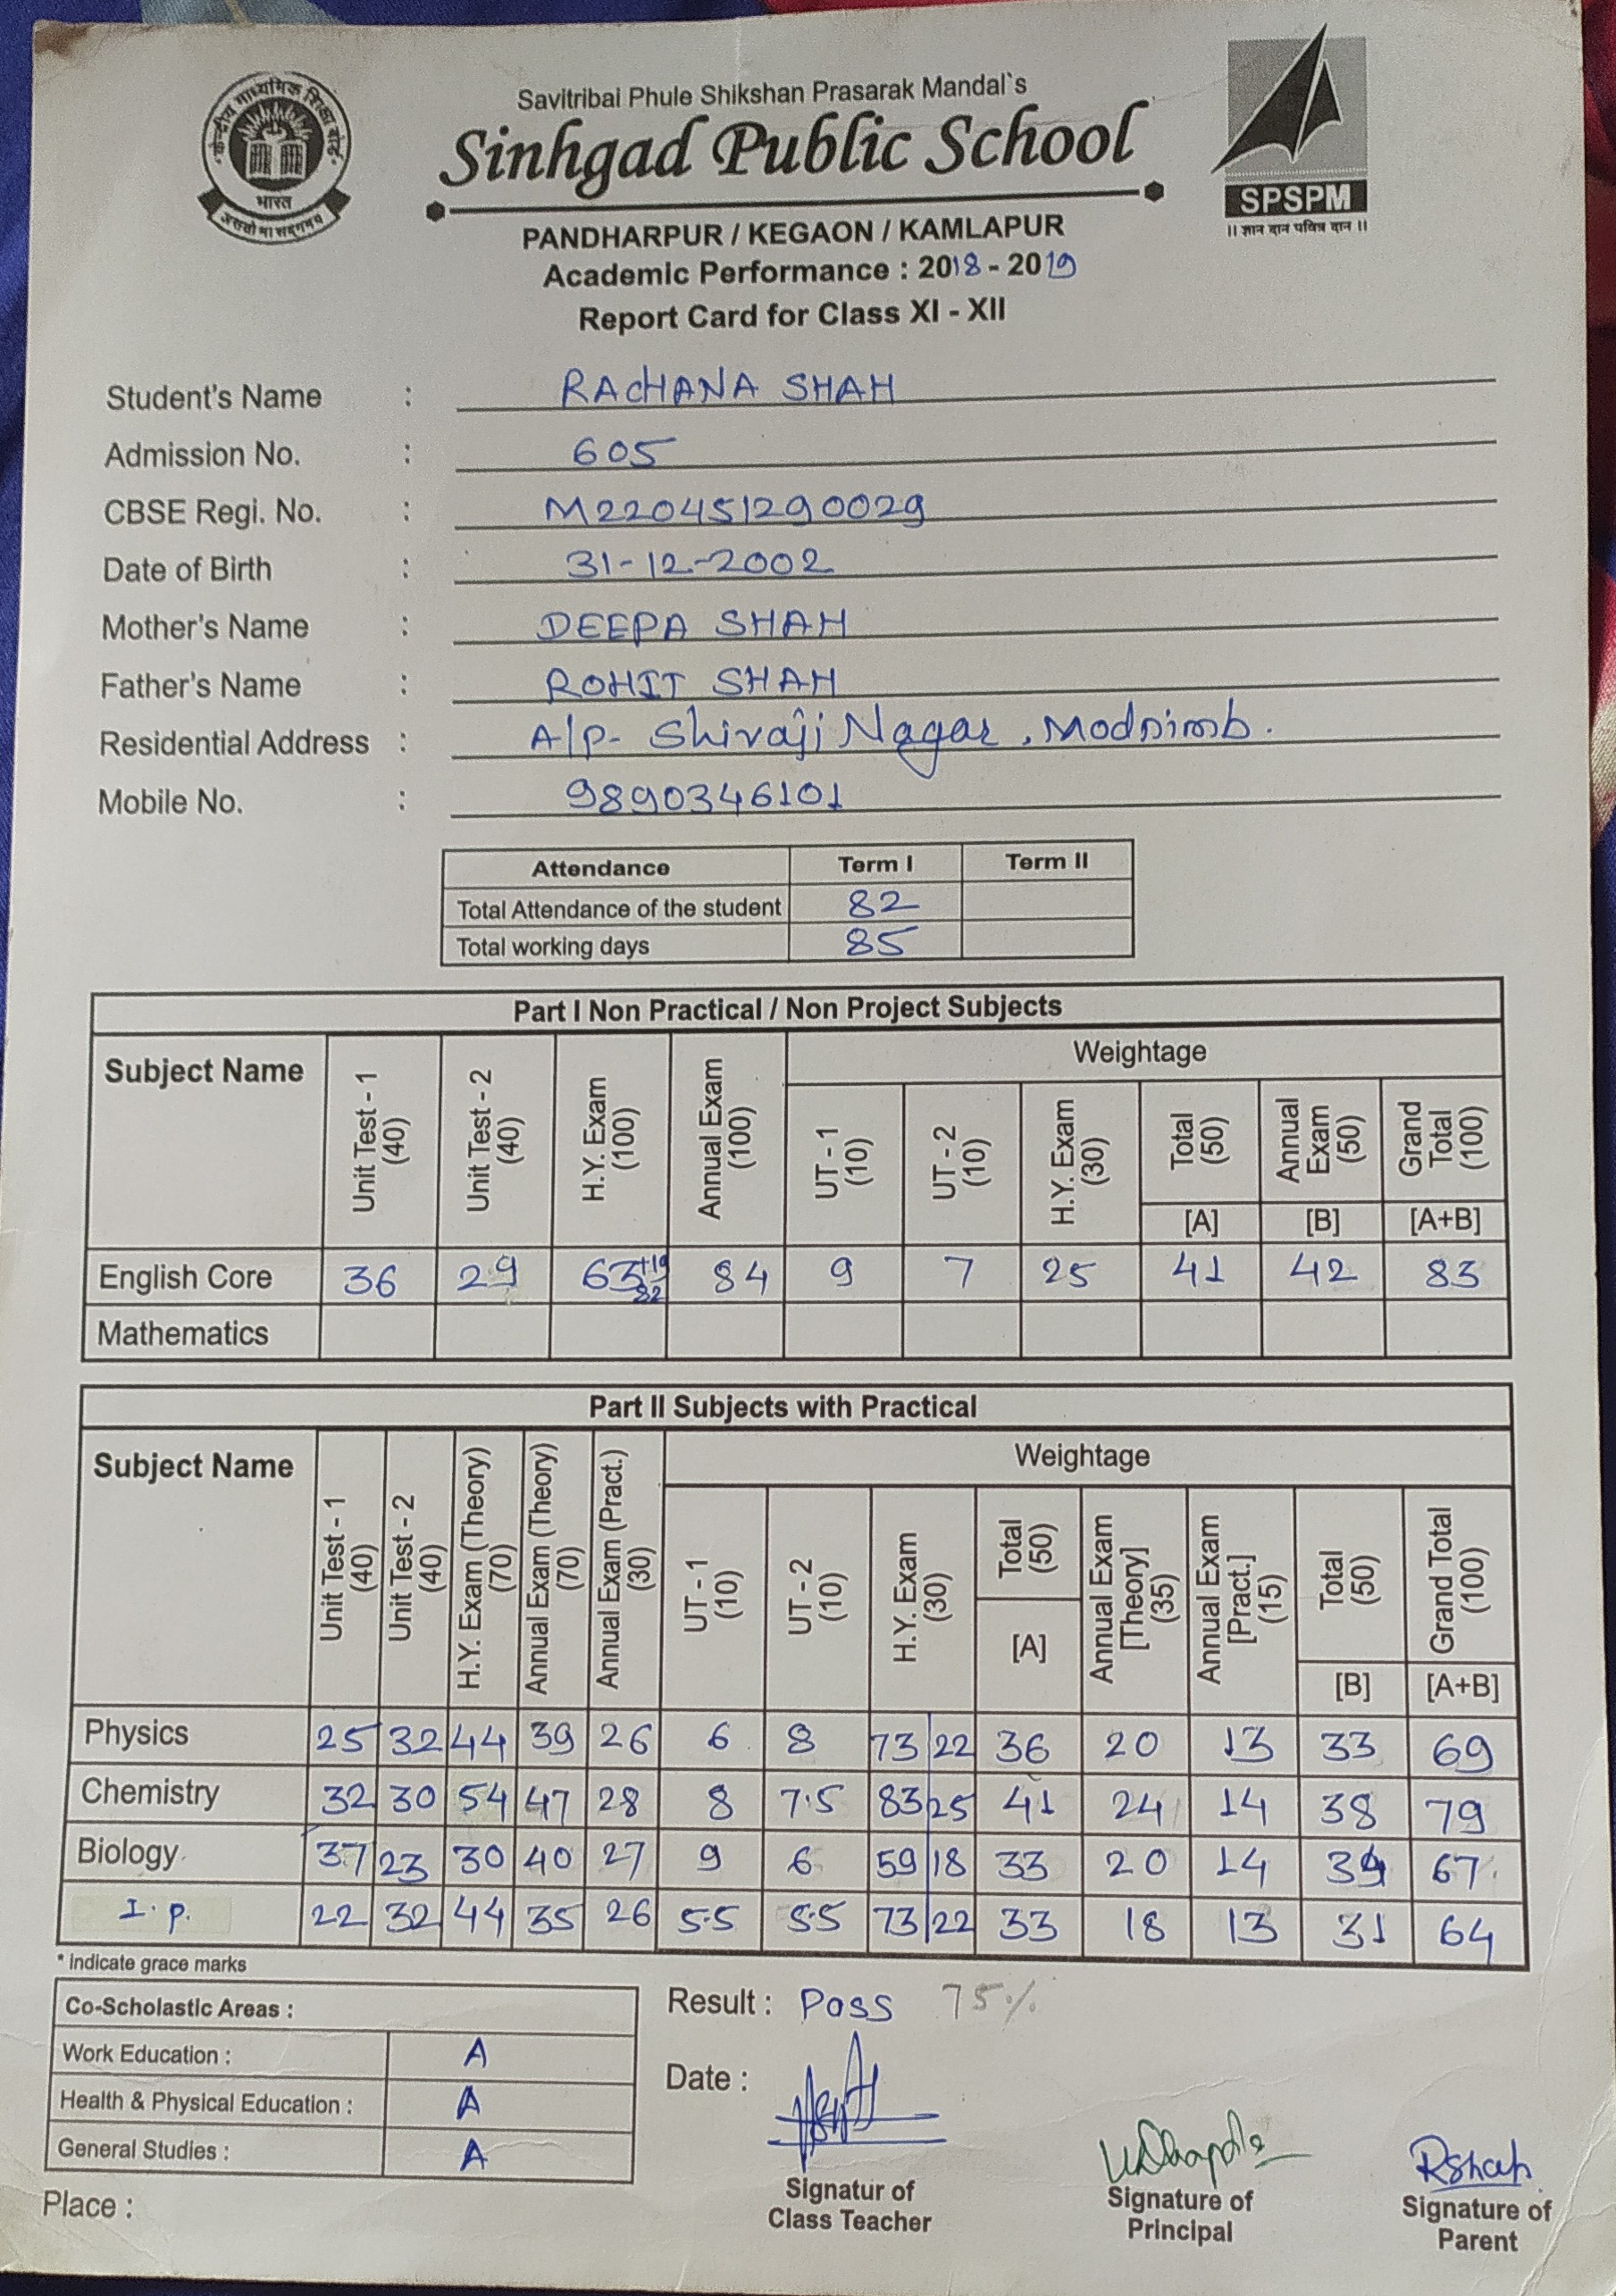 केन्द्रीय माध्यमिक शिक्षा बोर्ड
भारत
असतो मा सद्गमय
Savitribai Phule Shikshan Prasarak Mandal`s
Sinhgad Public School
SPSPM
|| ज्ञान दान पवित्र दान ||
PANDHARPUR / KEGAON / KAMLAPUR
Academic Performance : 2018 - 2019
Report Card for Class XI - XII
Student's Name : RACHANA SHAH
Admission No. : 605
CBSE Regi. No. : M220451290029
Date of Birth : 31-12-2002
Mother's Name : DEEPA SHAH
Father's Name : ROHIT SHAH
Residential Address : A/p- Shivaji Nagar, Modnimb.
Mobile No. : 9890346101
Attendance Term I Term II
Total Attendance of the student 82
Total working days 85
Part I Non Practical / Non Project Subjects
Subject Name Unit Test - 1 (40) Unit Test - 2 (40) H.Y. Exam (100) Annual Exam (100) Weightage
UT - 1 (10) UT - 2 (10) H.Y. Exam (30) Total (50) Annual Exam (50) Grand Total (100)
[A] [B] [A+B]
English Core 36 29 63 +19 82 84 9 7 25 41 42 83
Mathematics
Part II Subjects with Practical
Subject Name Unit Test - 1 (40) Unit Test - 2 (40) H.Y. Exam (Theory) (70) Annual Exam (Theory) (70) Annual Exam (Pract.) (30) Weightage
UT - 1 (10) UT - 2 (10) H.Y. Exam (30) Total (50) Annual Exam [Theory] (35) Annual Exam [Pract.] (15) Total (50) Grand Total (100)
[A] [B] [A+B]
Physics 25 32 44 39 26 6 8 73 22 36 20 13 33 69
Chemistry 32 30 54 47 28 8 7.5 83 25 41 24 14 38 79
Biology 37 23 30 40 27 9 6 59 18 33 20 14 34 67
I.P. 22 32 44 35 26 5.5 5.5 73 22 33 18 13 31 64
* Indicate grace marks
Co-Scholastic Areas :
Work Education : A
Health & Physical Education : A
General Studies : A
Result : Pass 75%
Date :
Place :
Signatur of
Class Teacher
Signature of
Principal
Rshah
Signature of
Parent